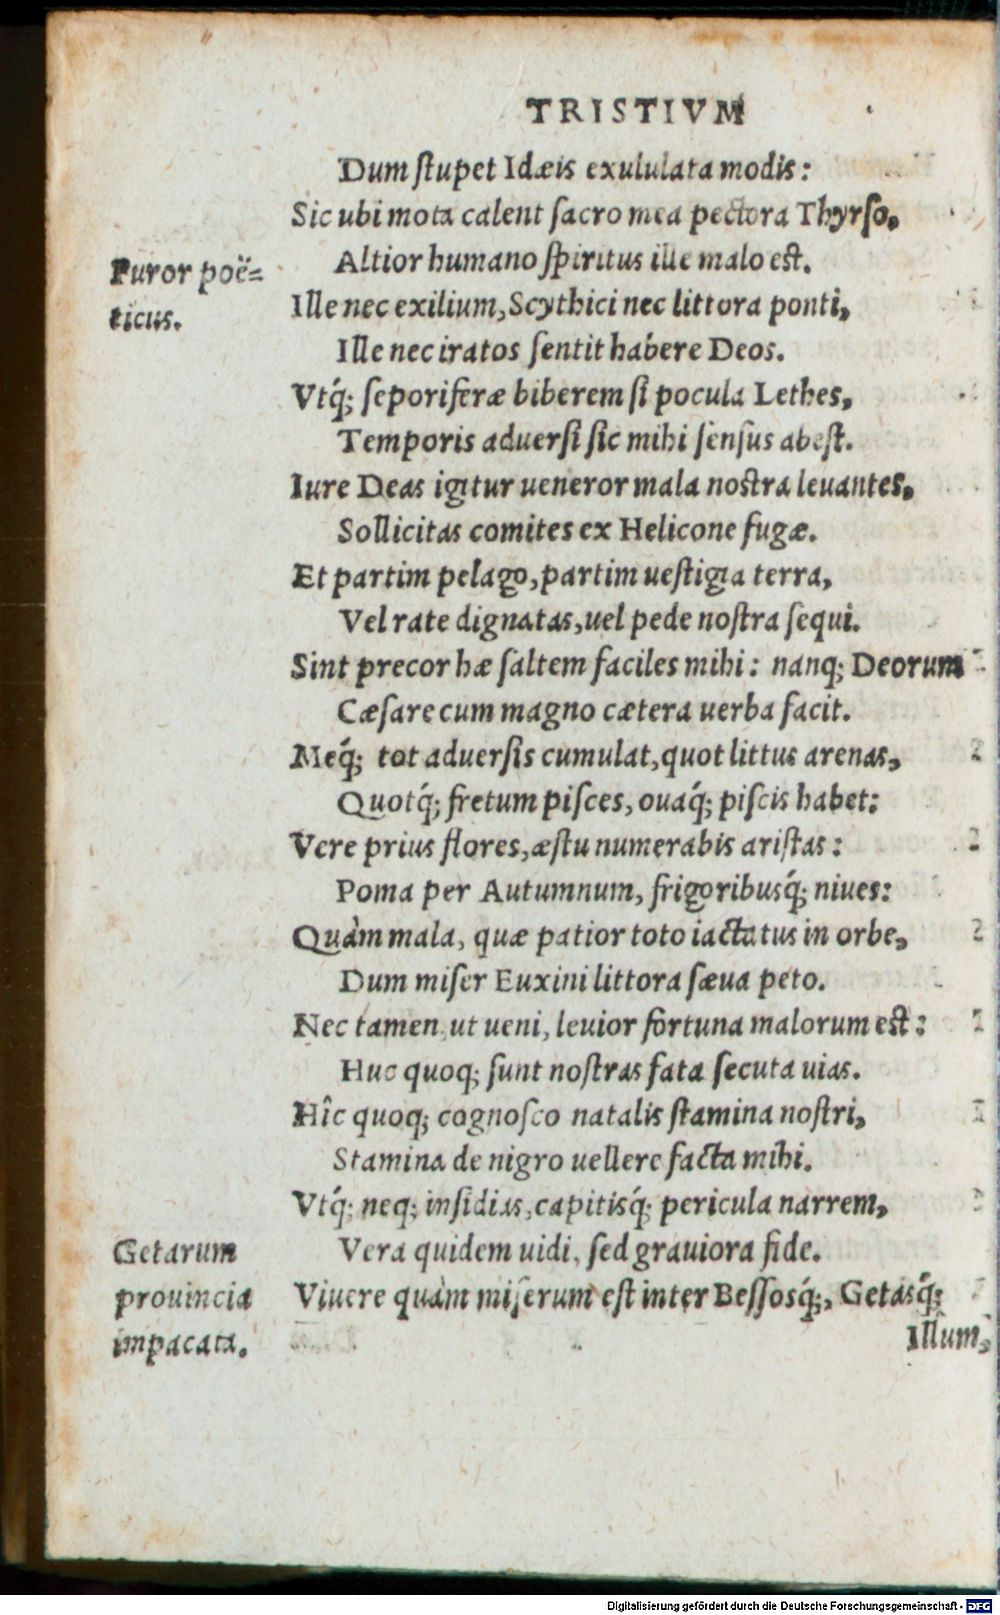 TRISTIVM
Dum stupet Idæis exululata modis:
Sic ubi mota calent sacro mea pectora Thyrso,
Altior humano spiritus ille malo est.
Furor poë=
ticus.
Ille nec exilium, Scythici nec littora ponti,
Ille nec iratos sentit habere Deos.
Vtq́; seporiferæ biberem si pocula Lethes,
Temporis aduersi sic mihi sensus abest.
Iure Deas igitur ueneror mala nostra leuantes,
Sollicitas comites ex Helicone fugæ.
Et partim pelago, partim uestigia terra,
Vel rate dignatas, uel pede nostra sequi.
Sint precor hæ saltem faciles mihi: nanq; Deorum
Cæsare cum magno cætera uerba facit.
Meq́; tot aduersis cumulat, quot littus arenas,
Quotq́; fretum pisces, ouaq́; piscis habet:
Vere prius flores, æstu numerabis aristas:
Poma per Autumnum, frigoribusq́; niues:
Quàm mala, quæ patior toto iactatus in orbe,
Dum miser Euxini littora sæua peto.
Nec tamen, ut ueni, leuior fortuna malorum est:
Huc quoq; sunt nostras fata secuta uias.
Hîc quoq; cognosco natalis stamina nostri,
Stamina de nigro uellere facta mihi.
Vtq́; neq; insidias, capitisq́; pericula narrem,
Vera quidem uidi, sed grauiora fide.
Getarum
prouincia
impacata.
Viuere quàm miserum est inter Bessosq́;, Getasq́;
Illum,
Digitalisierung gefördert durch die Deutsche Forschungsgemeinschaft - DFG